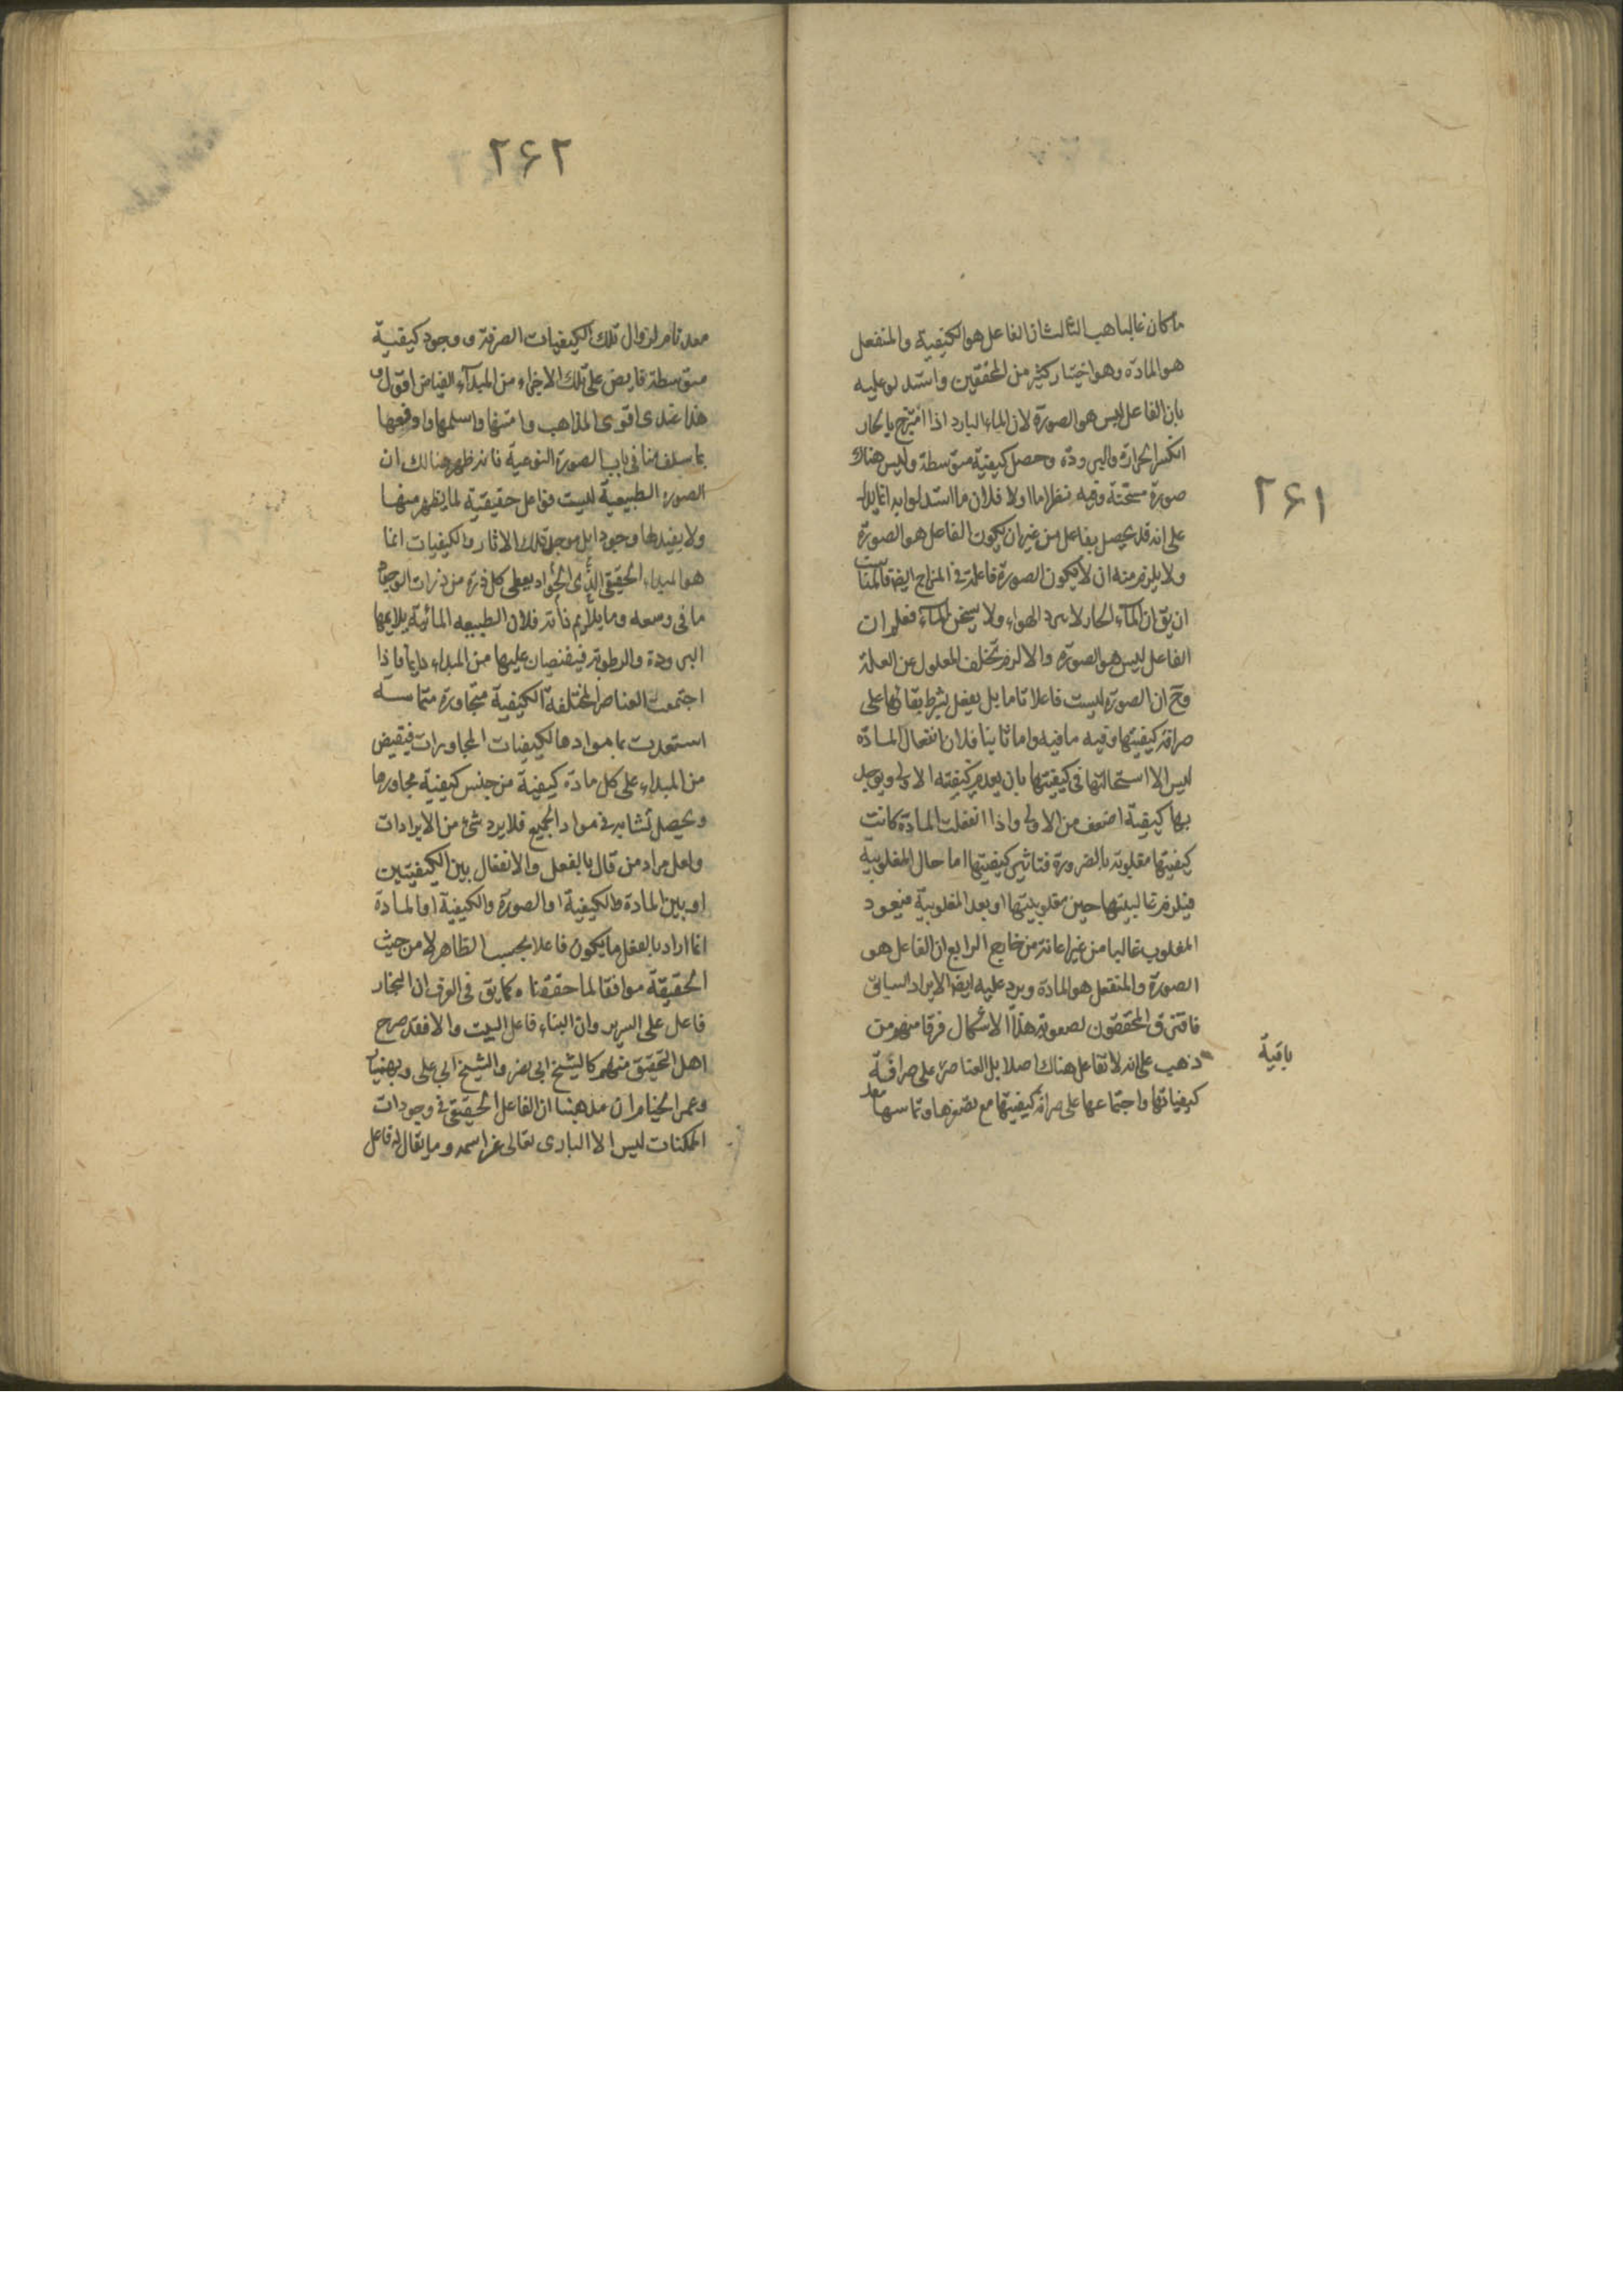 ۲۶۱
ما كان غالبا هب الثالث ان الفاعل هو الكيفية والمنفعل
هو المادة وهو اختيار كثير من المحققين واستدلو عليه
بان الفاعل ليس هو الصورة لان الماء البارد اذا امتزج بالحار
انكسر الحرارة والبرودة وحصل كيفية متوسطة وليس هناك
صورة مسخنة وفيه نظر اما اولا فلان ما استدلوا به انما يدل
على انه قد يحصل بفاعل من غير ان يكون الفاعل هو الصورة
ولا يلزم منه ان لا يكون الصورة فاعلة في المزاج ايضا فالمناسب
ان يق ان الماء الحار لا يبرد الهواء ولا يسخن الماء فعلم ان
الفاعل ليس هو الصورة والا لزم تخلف المعلول عن العلة
وح ان الصورة ليست فاعلا تاما بل يفعل بشرط بقائها على
صرافة كيفيتها وفيه ما فيه واما ثانيا فلان انفعال المادة
ليس الا استحالتها في كيفيتها بان يعدم كيفيته الاولى ويوجد
بها كيفية اضعف من الاولى واذا انفعلت المادة كانت
كيفيتها مغلوبة بالضرورة فتاثير كيفيتها اما حال المغلوبية
فيلزم غالبيتها حين مغلوبيتها او بعد المغلوبية فيعود
المغلوب غالبا من غير اعانة من خارج الرابع ان الفاعل هو
الصورة والمنفعل هو المادة ويرد عليه ايضا الايراد السابق
فافترق المحققون لصعوبة هذا الاشكال فرقا منهم من
ذهب على انه لا تفاعل هناك اصلا بل العناصر على صرافة
باقية
كيفياتها واجتماعها على صرافة كيفيتها مع تصغرها وتماسها
معد
۲۶۲
معد تام لزوال تلك الكيفيات الصرفة و وجود كيفية
متوسطة فايض على تلك الاجزاء من المبدآء الفياض اقول و
هذا عندى اقوى المذاهب وامتنها واسلمها واوفقها
بما سلف منا فى باب الصورة النوعية فانه ظهر هنالك ان
الصورة الطبيعية ليست فواعل حقيقية لما يظهر منها
ولا يفيدها وجودا بل موجد تلك الاثار والكيفيات انما
هو المبداء الحقيقى الذى الجواد يعطى كل ذرة من ذرات الوجود
ما فى وسعه وما يلايم ذاته فلان الطبيعه المائية يلايمها
البرودة والرطوبة فيفيضان عليها من المبداء دايما فاذا
اجتمعت العناصر المختلفة الكيفية متجاورة متماسة
استعدت بموادها لكيفيات المجاورات فيفيض
من المبداء على كل مادة كيفية من جنس كيفية مجاورها
ويحصل تشابه فى مواد الجميع فلا يرد شئ من الايرادات
ولعل مراد من قال بالفعل والانفعال بين الكيفيتين
او بين المادة والكيفية او الصورة والكيفية او المادة
انما اراد بالفعل ما يكون فاعلا بحسب الظاهر لا من حيث
الحقيقة موافقا لما حققناه كما يق فى العرف ان النجار
فاعل على السرير وان البناء فاعل البيت والا فقد صرح
اهل التحقيق منهم كالشيخ ابى نصر والشيخ ابى على وبهمنيار
وعمر الخيام ان مذهبنا ان الفاعل الحقيقى فى وجودات
الممكنات ليس الا البارى تعالى عز اسمه وما يقال له فاعل